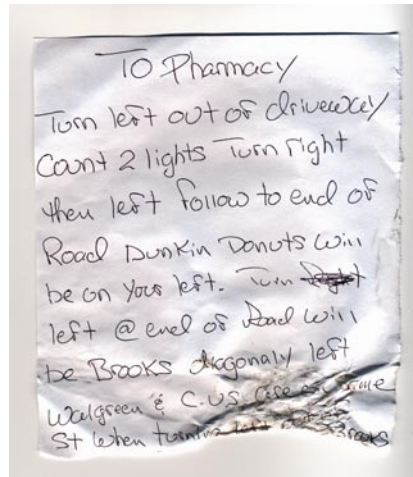 TO Pharmacy
Turn left out of driveway
Count 2 lights Turn right
then left follow to end of
Road Dunkin Donuts will
be on your left. Turn
left @ end of Road will
be Brooks diagonaly left
Walgreen & C.V.S. are on same
St when turning left out of Brooks